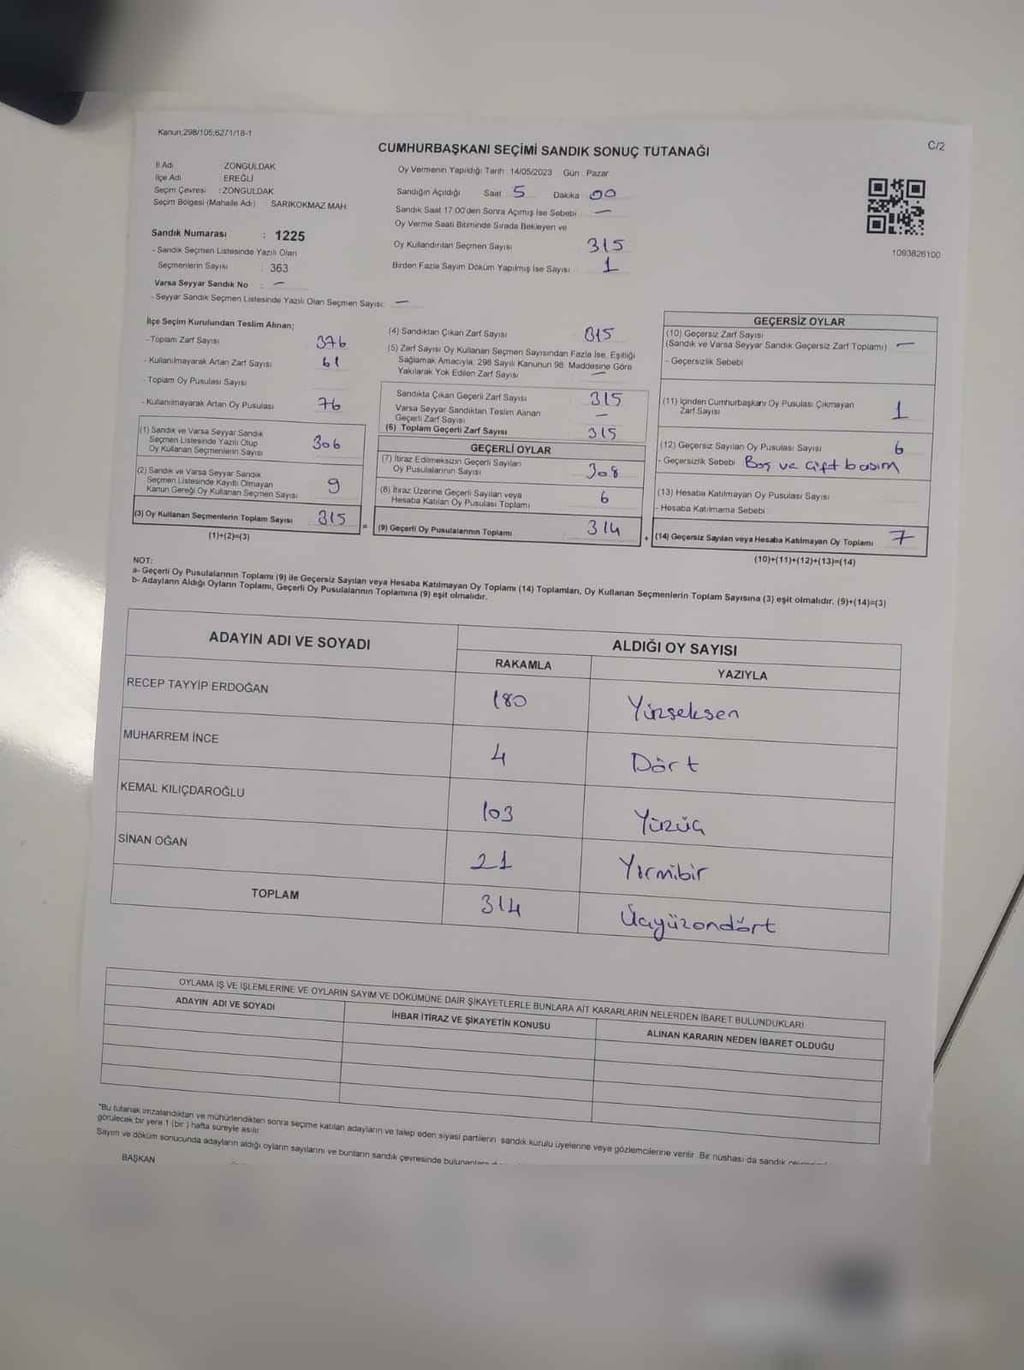 Kanun;298/105,6271/18-1
C/2
CUMHURBAŞKANI SEÇİMİ SANDIK SONUÇ TUTANAĞI
İl Adı : ZONGULDAK
İlçe Adı : EREĞLİ
Seçim Çevresi : ZONGULDAK
Seçim Bölgesi (Mahalle Adı) : SARIKOKMAZ MAH.
Sandık Numarası : 1225
- Sandık Seçmen Listesinde Yazılı Olan
Seçmenlerin Sayısı : 363
Varsa Seyyar Sandık No : —
- Seyyar Sandık Seçmen Listesinde Yazılı Olan Seçmen Sayısı: —
Oy Vermenin Yapıldığı Tarih : 14/05/2023 Gün : Pazar
Sandığın Açıldığı Saat 5 Dakika 00
Sandık Saat 17.00'den Sonra Açımış İse Sebebi —
Oy Verme Saati Bitiminde Sırada Bekleyen ve
Oy Kullandırılan Seçmen Sayısı 315
Birden Fazla Sayım Döküm Yapılmış İse Sayısı 1
1093826100
İlçe Seçim Kurulundan Teslim Alınan;
-Toplam Zarf Sayısı 376
- Kullanılmayarak Artan Zarf Sayısı 61
- Toplam Oy Pusulası Sayısı
- Kullanılmayarak Artan Oy Pusulası 76
(1) Sandık ve Varsa Seyyar Sandık
Seçmen Listesinde Yazılı Olup
Oy Kullanan Seçmenlerin Sayısı 306
(2) Sandık ve Varsa Seyyar Sandık
Seçmen Listesinde Kayıtlı Olmayan
Kanun Gereği Oy Kullanan Seçmen Sayısı 9
(3) Oy Kullanan Seçmenlerin Toplam Sayısı 315
(1)+(2)=(3)
(4) Sandıktan Çıkan Zarf Sayısı 315
(5) Zarf Sayısı Oy Kullanan Seçmen Sayısından Fazla İse, Eşitliği
Sağlamak Amacıyla; 298 Sayılı Kanunun 98. Maddesine Göre
Yakılarak Yok Edilen Zarf Sayısı —
Sandıkta Çıkan Geçerli Zarf Sayısı 315
Varsa Seyyar Sandıktan Teslim Alınan
Geçerli Zarf Sayısı —
(6) Toplam Geçerli Zarf Sayısı 315
=
GEÇERLİ OYLAR
(7) İtiraz Edilmeksizin Geçerli Sayılan
Oy Pusulalarının Sayısı 308
(8) İtiraz Üzerine Geçerli Sayılan veya
Hesaba Katılan Oy Pusulası Toplamı 6
(9) Geçerli Oy Pusulalarının Toplamı 314
+
GEÇERSİZ OYLAR
(10) Geçersiz Zarf Sayısı
(Sandık ve Varsa Seyyar Sandık Geçersiz Zarf Toplamı) —
- Geçersizlik Sebebi
(11) İçinden Cumhurbaşkanı Oy Pusulası Çıkmayan
Zarf Sayısı 1
(12) Geçersiz Sayılan Oy Pusulası Sayısı 6
- Geçersizlik Sebebi Boş ve çift basım
(13) Hesaba Katılmayan Oy Pusulası Sayısı
- Hesaba Katılmama Sebebi
(14) Geçersiz Sayılan veya Hesaba Katılmayan Oy Toplamı 7
(10)+(11)+(12)+(13)=(14)
NOT:
a- Geçerli Oy Pusulalarının Toplamı (9) ile Geçersiz Sayılan veya Hesaba Katılmayan Oy Toplamı (14) Toplamları, Oy Kullanan Seçmenlerin Toplam Sayısına (3) eşit olmalıdır. (9)+(14)=(3)
b- Adayların Aldığı Oyların Toplamı, Geçerli Oy Pusulalarının Toplamına (9) eşit olmalıdır.
ADAYIN ADI VE SOYADI
ALDIĞI OY SAYISI
RAKAMLA YAZIYLA
RECEP TAYYİP ERDOĞAN 180 Yüzseksen
MUHARREM İNCE 4 Dört
KEMAL KILIÇDAROĞLU 103 Yüzüç
SİNAN OĞAN 21 Yirmibir
TOPLAM 314 Üçyüzondört
OYLAMA İŞ VE İŞLEMLERİNE VE OYLARIN SAYIM VE DÖKÜMÜNE DAİR ŞİKAYETLERLE BUNLARA AİT KARARLARIN NELERDEN İBARET BULUNDUKLARI
ADAYIN ADI VE SOYADI İHBAR İTİRAZ VE ŞİKAYETİN KONUSU ALINAN KARARIN NEDEN İBARET OLDUĞU
*Bu tutanak imzalandıktan ve mühürlendikten sonra seçime katılan adayların ve talep eden siyasi partilerin sandık kurulu üyelerine veya gözlemcilerine verilir. Bir nüshası da sandık
görülecek bir yere 1 (bir) hafta süreyle asılır.
Sayım ve döküm sonucunda adayların aldığı oyların sayılarını ve bunların sandık çevresinde
BAŞKAN